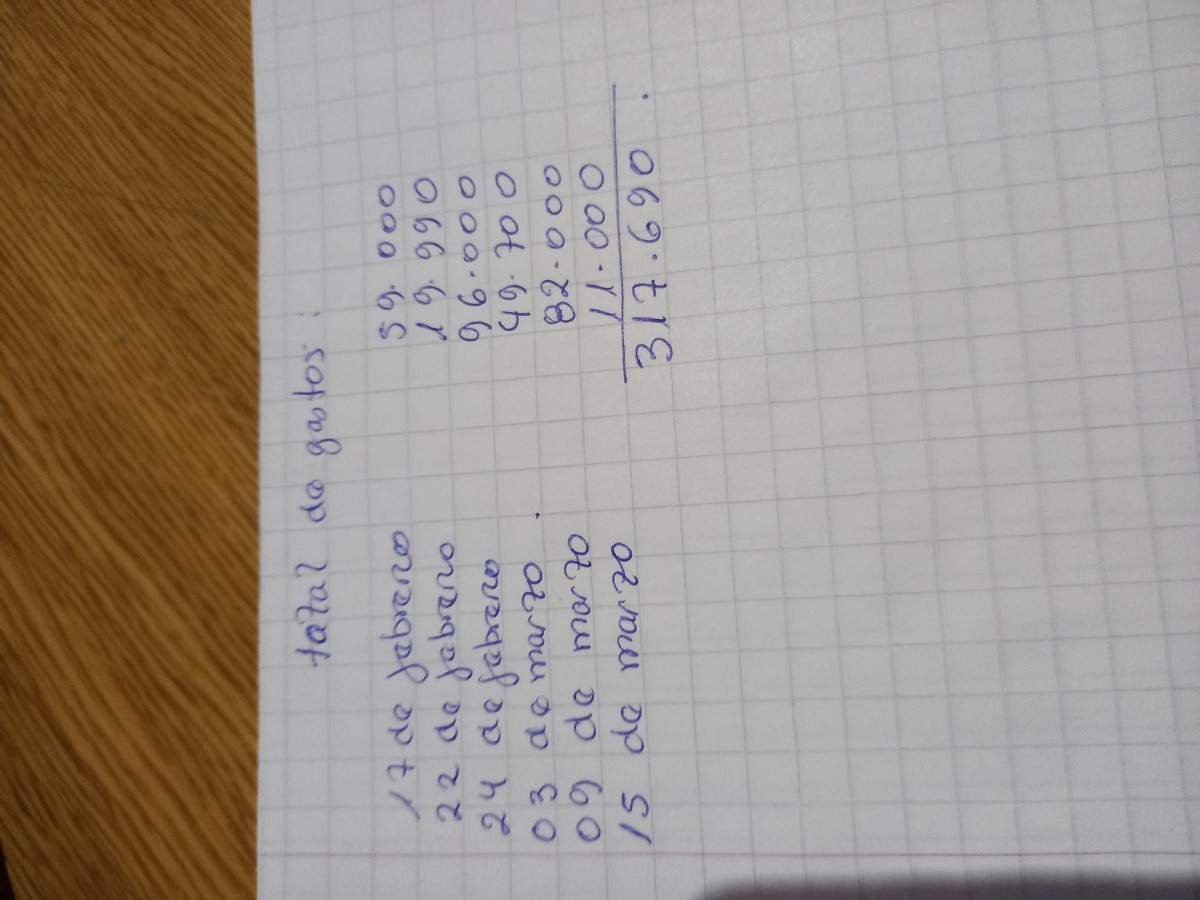 total de gastos :
17 de febrero 59.000
22 de febrero 19.990
24 de febrero 96.000
03 de marzo. 49.700
09 de marzo 82.000
15 de marzo 11.000
317.690.